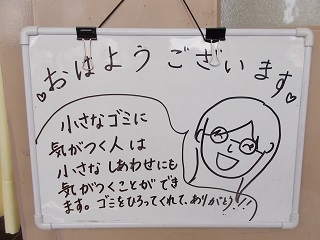 おはようございます
小さなゴミに
気がつく人は
小さなしあわせにも
気がつくことができ
ます。ゴミをひろってくれて、ありがとう!!!